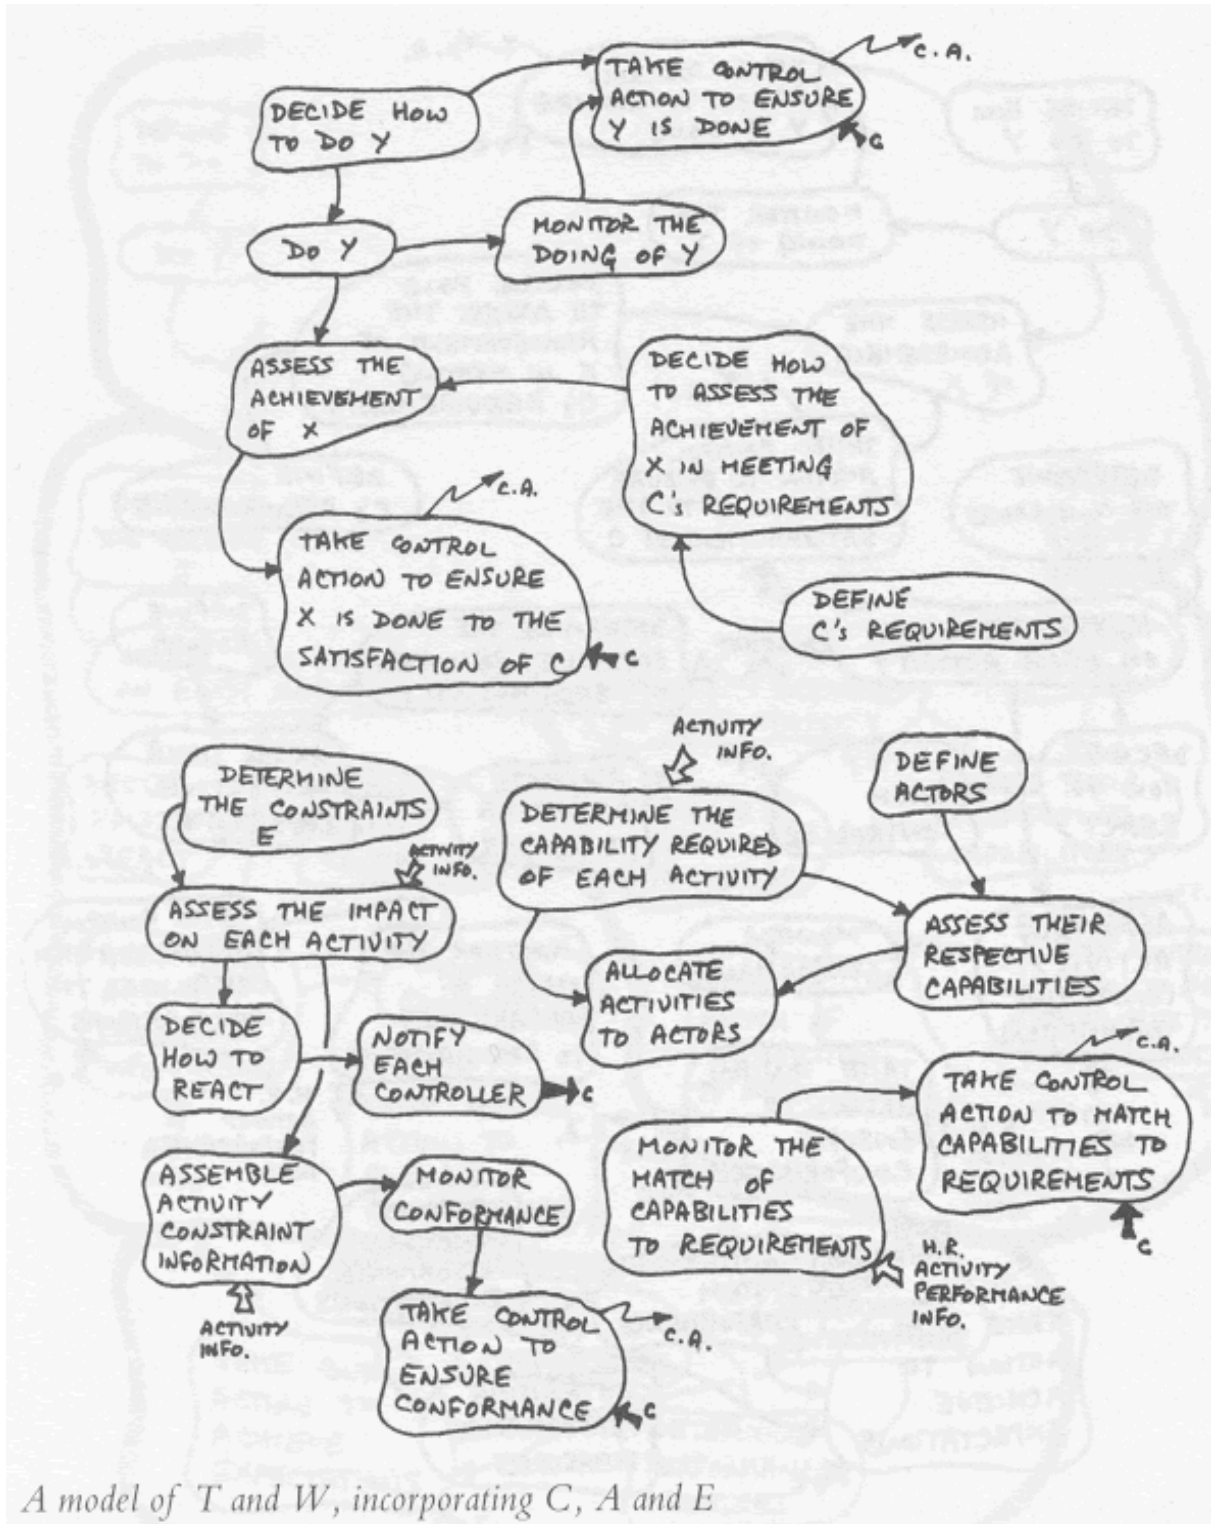 C.A.
TAKE CONTROL
ACTION TO ENSURE
Y IS DONE
C
DECIDE HOW
TO DO Y
DO Y
MONITOR THE
DOING OF Y
ASSESS THE
ACHIEVEMENT
OF X
DECIDE HOW
TO ASSESS THE
ACHIEVEMENT OF
X IN MEETING
C's REQUIREMENTS
C.A.
TAKE CONTROL
ACTION TO ENSURE
X IS DONE TO THE
SATISFACTION OF C
C
DEFINE
C's REQUIREMENTS
DETERMINE
THE CONSTRAINTS
E
ACTIVITY
INFO.
ASSESS THE IMPACT
ON EACH ACTIVITY
DECIDE
HOW TO
REACT
NOTIFY
EACH
CONTROLLER
C
ASSEMBLE
ACTIVITY
CONSTRAINT
INFORMATION
ACTIVITY
INFO.
MONITOR
CONFORMANCE
TAKE CONTROL
ACTION TO
ENSURE
CONFORMANCE
C.A.
C
ACTIVITY
INFO.
DETERMINE THE
CAPABILITY REQUIRED
OF EACH ACTIVITY
DEFINE
ACTORS
ASSESS THEIR
RESPECTIVE
CAPABILITIES
ALLOCATE
ACTIVITIES
TO ACTORS
C.A.
TAKE CONTROL
ACTION TO MATCH
CAPABILITIES TO
REQUIREMENTS
C
MONITOR THE
MATCH OF
CAPABILITIES
TO REQUIREMENTS
H.R.
ACTIVITY
PERFORMANCE
INFO.
A model of T and W, incorporating C, A and E